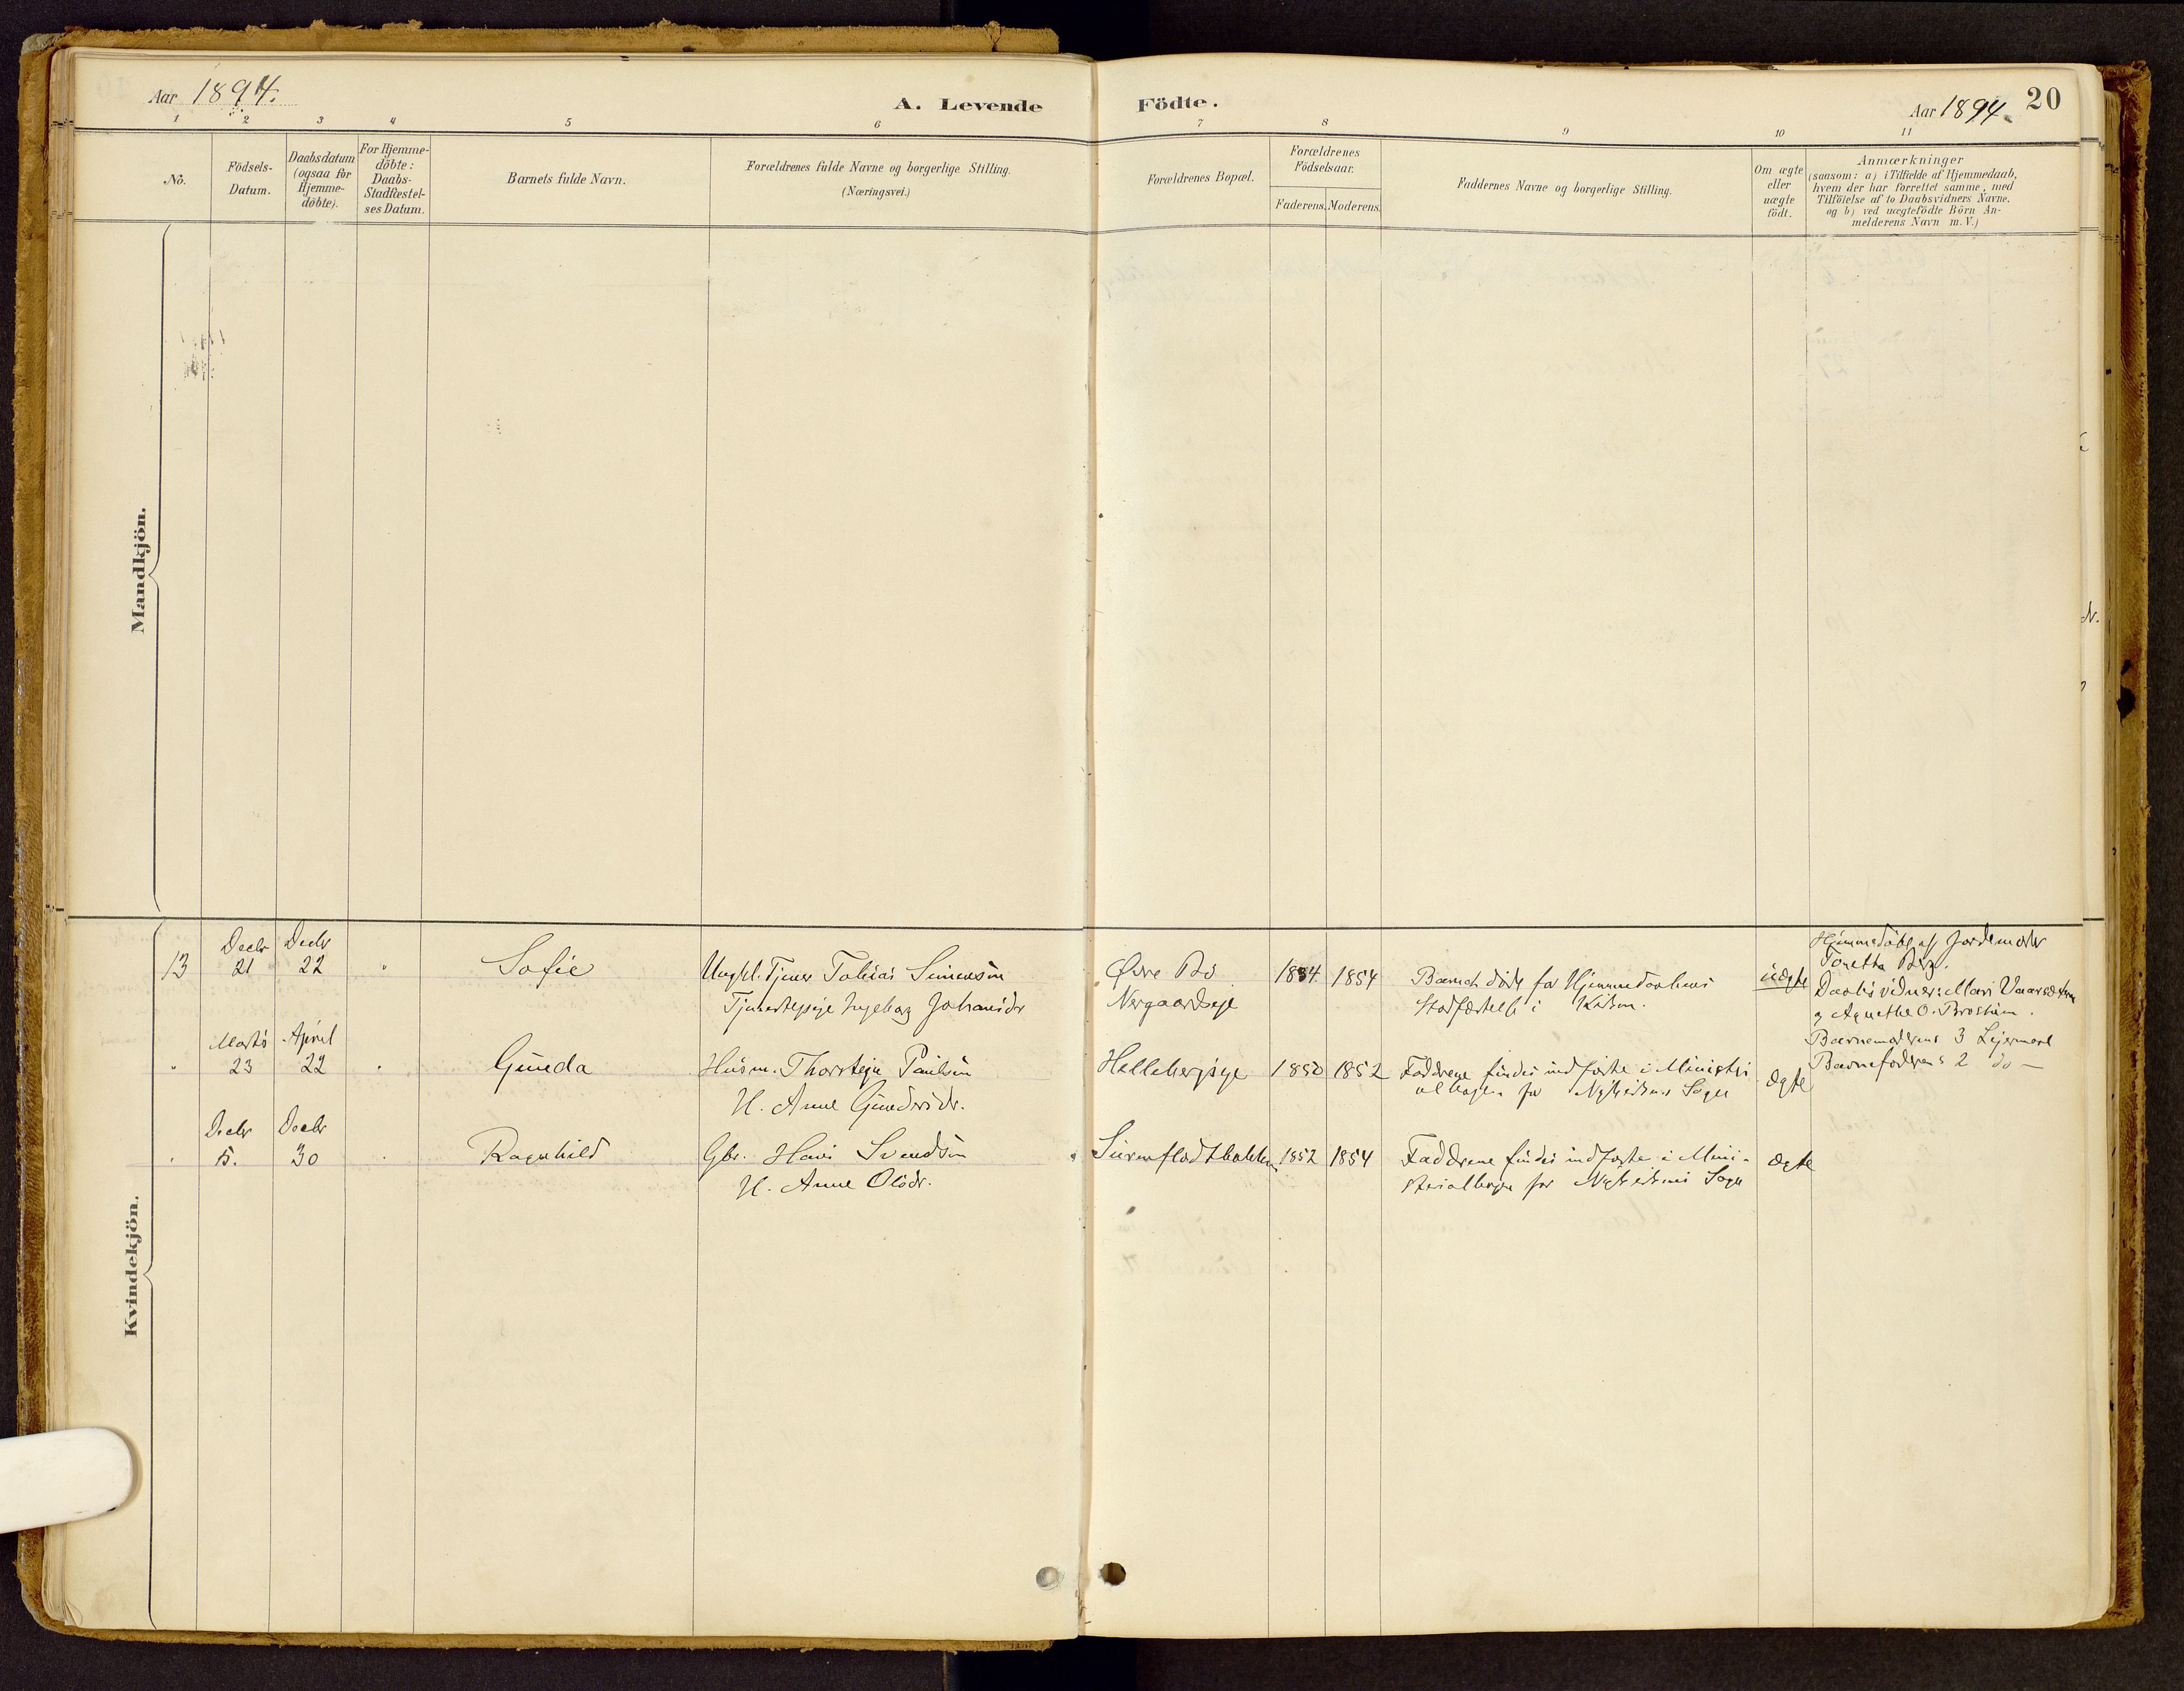 Aar 1894.
A. Levende Födte.
Aar 1894.
20
1 2 3 4 5 6 7 8 9 10 11
No.
Födsels-
Datum.
Daabsdatum
(ogsaa for
Hjemme-
döbte).
For Hjemme-
döbte:
Daabs-
Stadfæstel-
ses Datum.
Barnets fulde Navn.
Forældrenes fulde Navne og borgerlige Stilling.
(Næringsvei.)
Forældrenes Bopæl.
Forældrenes
Födselsaar.
Faderens. Moderens.
Faddernes Navne og borgerlige Stilling.
Om ægte
eller
uægte
födt.
Anmærkninger
(saasom: a) i Tilfælde af Hjemmedaab,
hvem der har forrettet samme, med
Tilföielse af to Daabsvidners Navne.
og b) ved uægtefödte Börn An-
melderens Navn m. V.)
Mandkjön.
Kvindekjön.
13
Decbr
21
Decbr
22
Sofie
Ungkl. Tjener Tobias Simensön
Ingeborg Johansdr
Øvre Bö
1854
Barnet döde før Hjemmedaabens
i Kirken.
uægte
Hjemmedöbt af Jordemoder
Berg.
Daabsvidner: Mari
Agnethe O.
Barnemoderens 3 Lejermaal
Barnefaderens 2 do -
Marts
23
April
22
Gunda
Husm. Thorstein Paulsön
H. Anne Gundersdr.
1850 1852
Faddrene findes indførte i Ministri
albogen for Sogn
Ægte
Decbr
5.
Decbr
30
Ragnhild
Gbr. Hans Svendsön
H. Anne Olsdr.
1852 1854
Faddrene findes indførte i Mini-
sterialbogen for Sogn
ægte